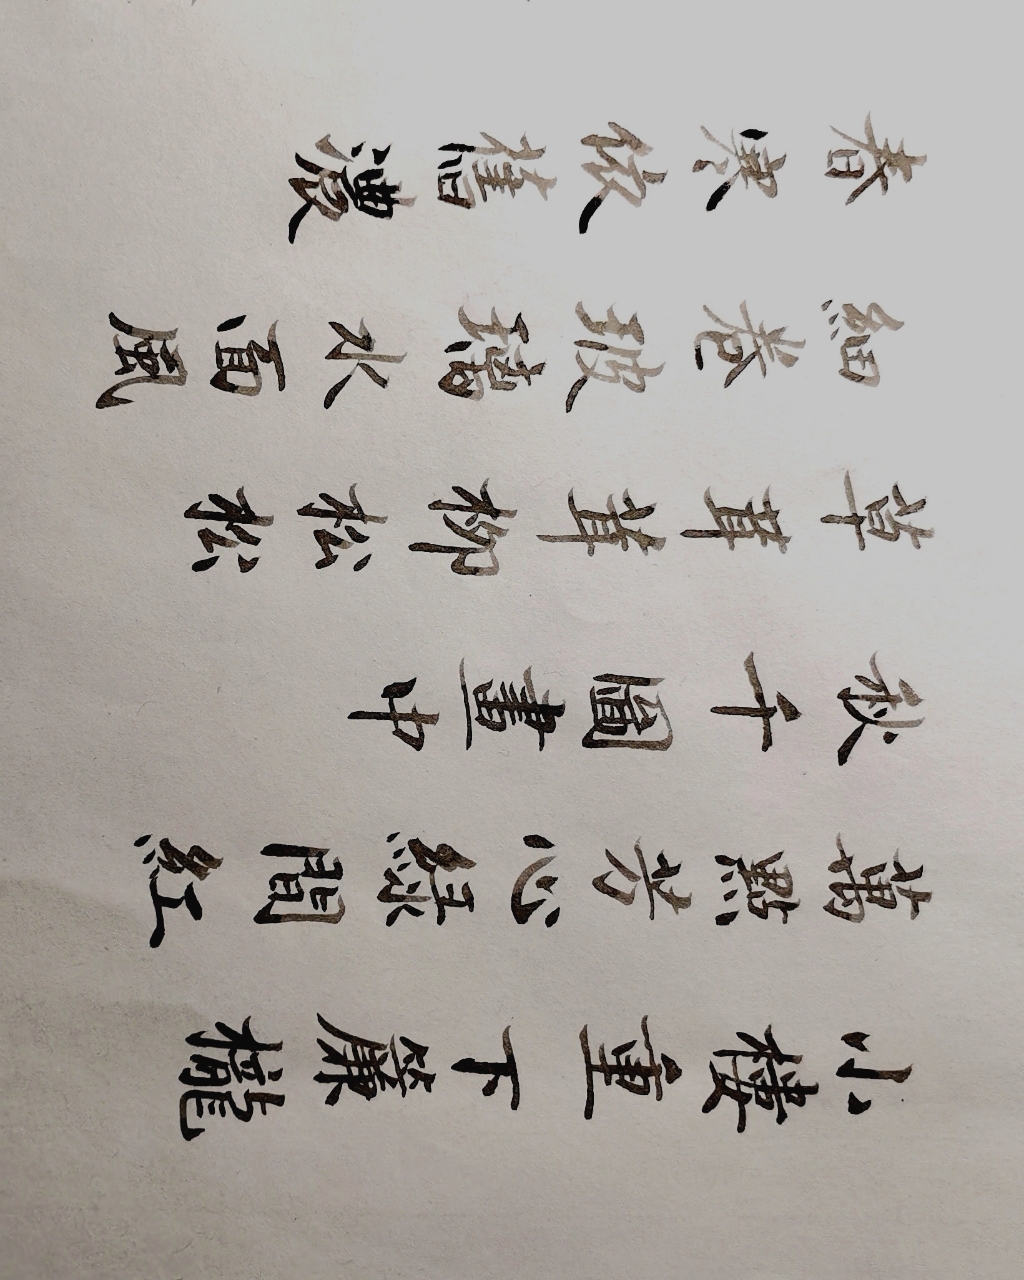 小樓重下簾櫳
萬點芳心綠間紅
秋千圖畫中
草茸茸柳松松
細卷玻璃水面風
春寒依舊濃